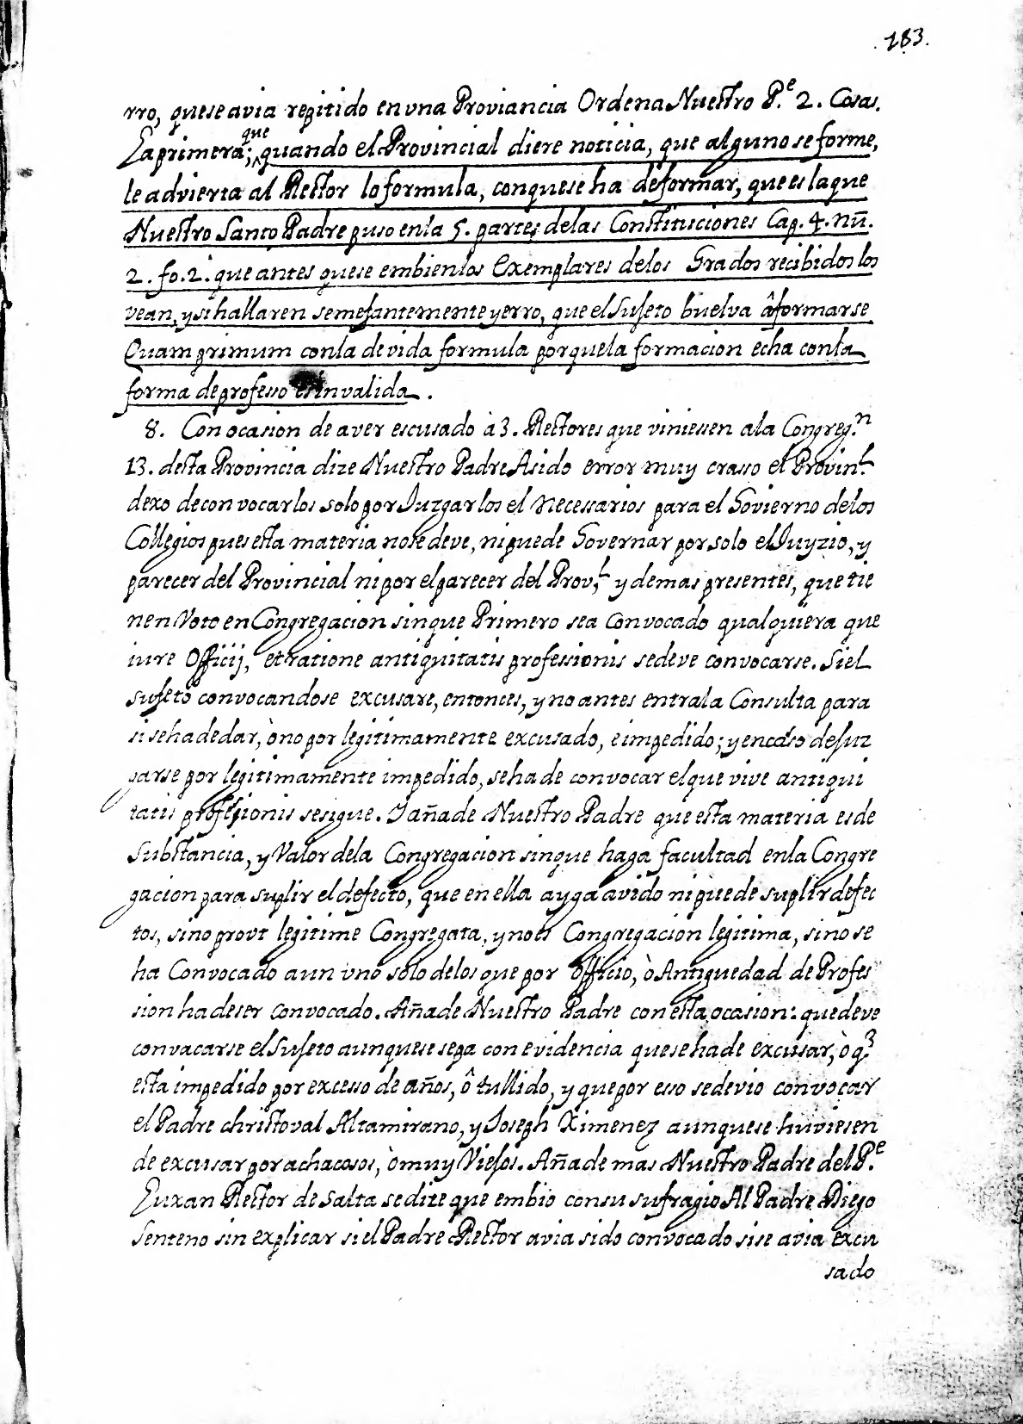 .183.
rro, que se avia repitido en vna Proviancia Ordena Nuestro P.e 2. Cosas.
La primera; que quando el Provincial diere noticia, que alguno se forme,
le advierta al Rector lo formula, con que se ha de formar, que es la que
Nuestro Santo Padre puso en la 5. parte; de las Constituciones Cap. 4. nū.
2. fo. 2. que antes que se embien los Exemplares de los Grados recibidos los
vean, y si hallaren semejantemente yerro, que el Sujeto buelva â formarse
Quam primum con la devida formula porque la formacion echa con la
forma de professo es invalida.
8. Con ocasion de aver escusado à 3. Rectores que viniessen a la Congreg.n
13. desta Provincia dize Nuestro Padre A sido error muy crasso el Provin.l
dexo de convocarlos solo por Juzgarlos el necessarios para el Govierno de los
Collegios pues esta materia no se deve, ni puede Governar por solo el Juyzio, y
parecer del Provincial ni por el parecer del Prov.l y demas presentes, que tie
nen Voto en Congregacion sin que Primero sea Convocado qualquiera que
iure Officij, et ratione antiquitatis professionis se deve convocarse. Si el
sujeto convocandose excusare, entonces, y no antes entra la Consulta para
si se ha de dar, ò no por legitimamente excusado, e impedido; y en caso de Juz
garse por legitimamente impedido, se ha de convocar el que vive antiqui
tatis profesionis se sigue. I añade Nuestro Padre que esta materia es de
Substancia, y Valor de la Congregacion sin que haga facultad en la Congre
gacion para suplir el defecto, que en ella ayga avido ni puede suplir defec
tos, sino provt legitime Congregata, y no es Congregacion legitima, si no se
ha Convocado aun vno solo de los que por officio, ò Antiguedad de Profes
sion ha de ser convocado. Añade Nuestro Padre con esta ocasion: que deve
convacarse el Sujeto aunque se sepa con evidencia que se ha de excusar, ò q.e
esta impedido por excesso de años, ô tullido, y que por esso se devio convocar
el Padre christoval Altamirano, y Joseph Ximenez aunque se huviesen
de excusar por achacosos, ò muy Viejos. Añade mas Nuestro Padre del P.e
Luxan Rector de Salta se dize que embio con su sufragio Al Padre Diego
Senteno sin explicar si el Padre Rector avia sido convocado si se avia excu
sado